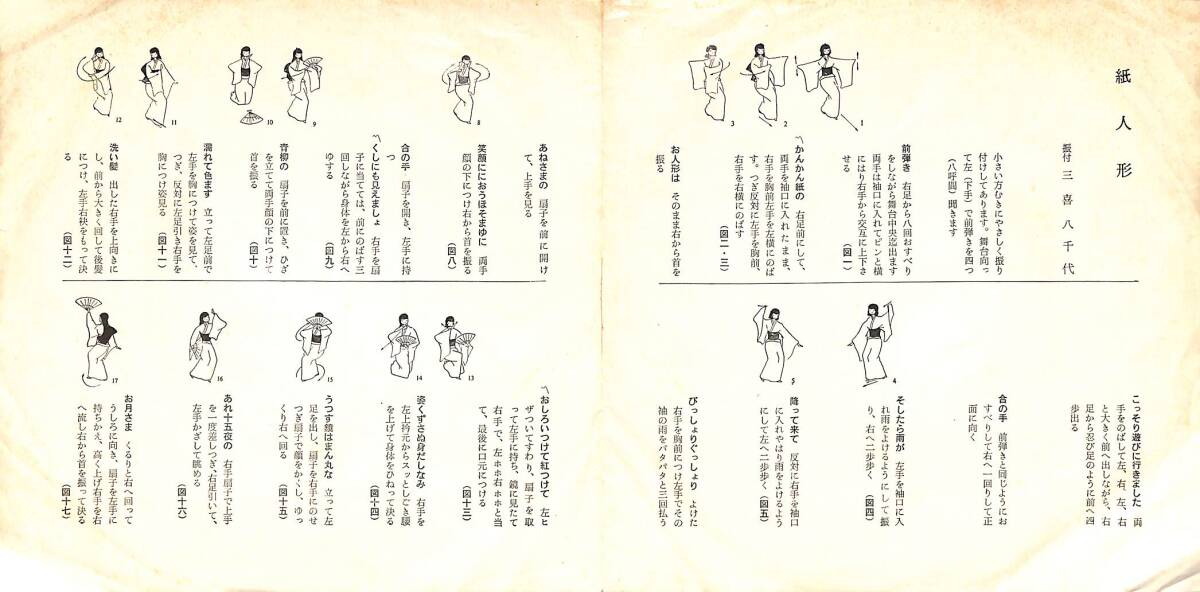 紙人形
振付 三喜八千代
小さい方むきにやさしく振り
付けしてあります。舞台向っ
て左(下手)で前弾きを四つ
(八呼間)聞きます
前弾き 右足から八回おすべり
をしながら舞台中央迄出ます
両手は袖口に入れてピンと横
にはり右手から交互に上下さ
せる
(図一)
〽かんかん紙の 右足前にして、
両手を袖口に入れたまま、
右手を胸前左手を左横にのば
す。つぎ反対に左手を胸前、
右手を右横にのばす
(図二・三)
お人形は そのまま右から首を
振る
1
2
3
こっそり遊びに行きました 両
手をのばして左、右、左、右
と大きく前へ出しながら、右
足から忍び足のように前へ四
歩出る
合の手 前弾きと同じようにお
すべりして右へ一回りして正
面に向く
そしたら雨が 左手を袖口に入
れ雨をよけるようにして振
り、右へ二歩歩く (図四)
降って来て 反対に右手を袖口
に入れやはり雨をよけるよう
にして左へ二歩歩く (図五)
びっしょりぐっしょり よけた
右手を胸前につけ左手でその
袖の雨をパタパタと三回払う
4
5
あねさまの 扇子を前に開け
て、上手を見る
笑顔ににおうほそまゆに 両手
顔の下につけ右から首を振る
(図八)
合の手 扇子を開き、左手に持
つ
〽くしにも見えましょ 右手を扇
子に当てては、前にのばす三
回しながら身体を左から右へ
ゆする (図九)
青柳の 扇子を前に置き、ひざ
を立てて両手顔の下につけて
首を振る (図十)
濡れて色ます 立って左足前で
左手を胸につけて姿を見て、
つぎ、反対に左足引き右手を
胸につけ姿見る (図十一)
洗い髪 出した右手を上向きに
し、前から大きく回して後髪
につけ、左手右袂をもって決
る (図十二)
8
9
10
11
12
〽おしろいつけて紅つけて 左ヒ
ザついてすわり、扇子を取
って左手に持ち、鏡に見たて
右手で、左ホホ右ホホと当
て、最後に口元につける
(図十三)
姿くずさぬ身だしなみ 右手を
左上衿元からスッとしごき腰
を上げて身体をひねって決る
(図十四)
うつす鏡はまん丸な 立って左
足を出し、扇子を右手にのせ
つぎ扇子で顔をかくし、ゆっ
くり右へ回る (図十五)
あれ十五夜の 右手扇子で上手
を一度差しつぎ、右足引いて、
左手かざして眺める
(図十六)
お月さま くるりと右へ回って
うしろに向き、扇子を左手に
持ちかえ、高く上げ右手を右
へ流し右から首を振って決る
(図十七)
13
14
15
16
17